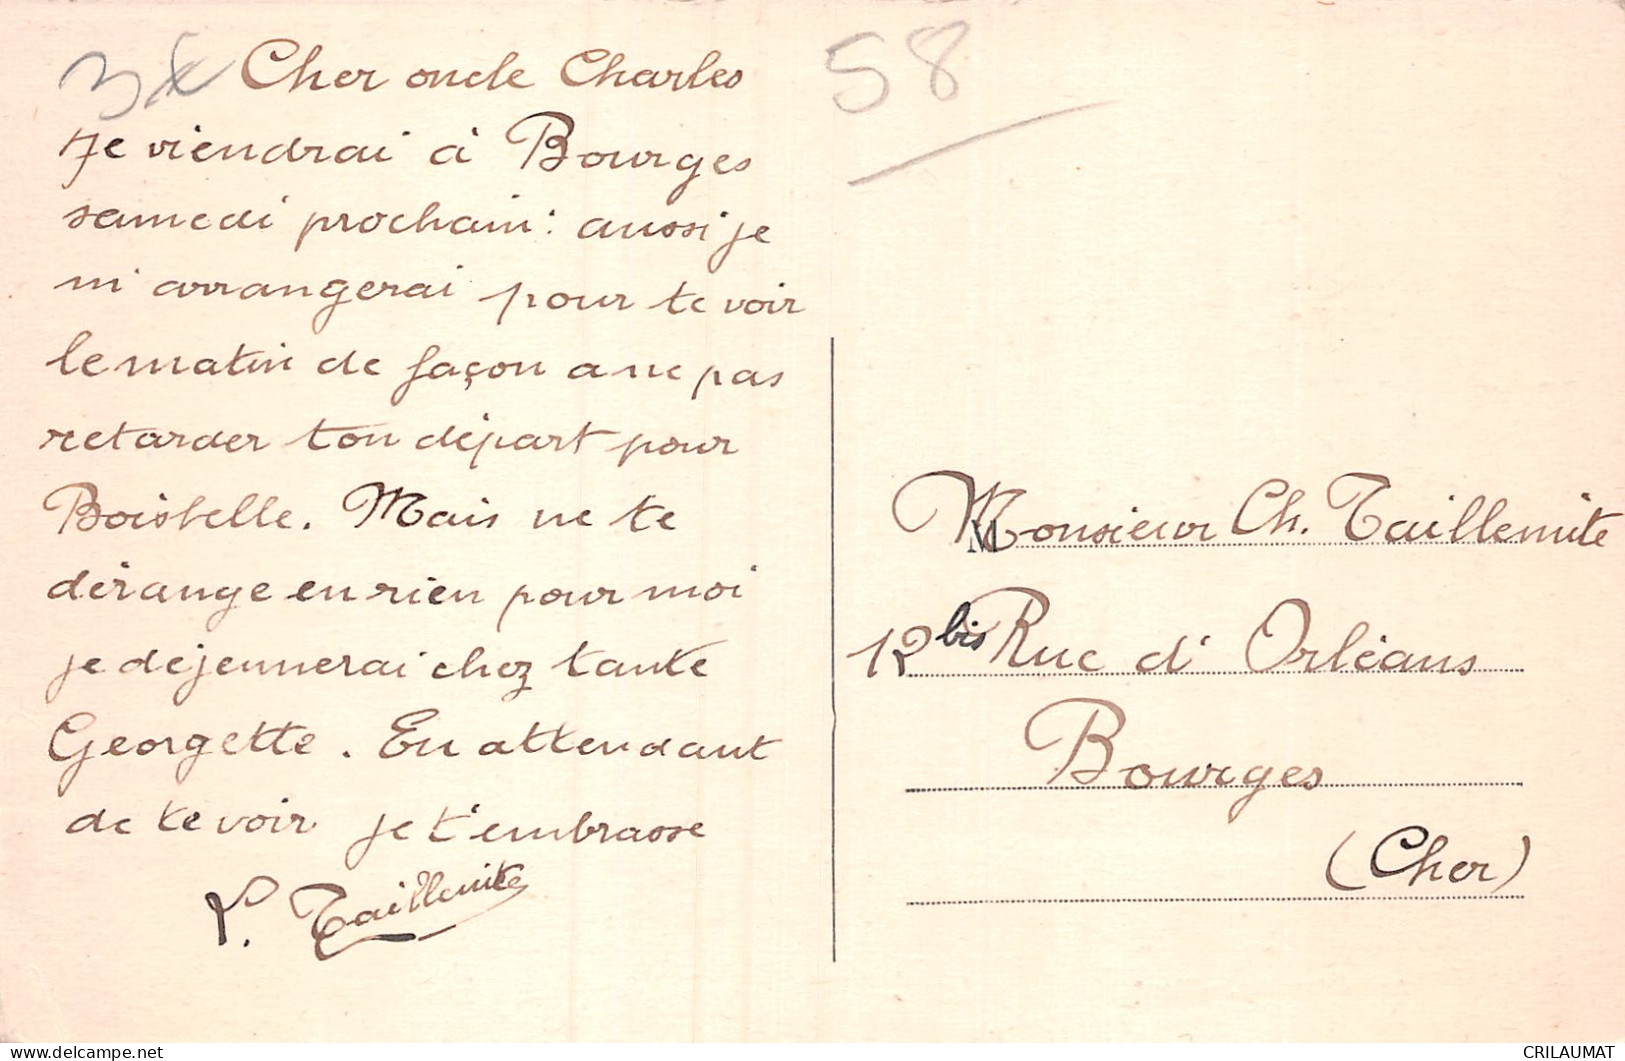 Cher oncle Charles
Je viendrai à Bourges
samedi prochain: aussi je
m'arrangerai pour te voir
le matin de façon a ne pas
retarder ton départ pour
Boisbelle. Mais ne te
dérange en rien pour moi
je déjeunerai chez tante
Georgette. En attendant
de te voir je t'embrasse
Taillemite
58
Monsieur Ch. Taillemite
12 bis Rue d'Orléans
Bourges
(Cher)
delcampe.net
CRILAUMAT